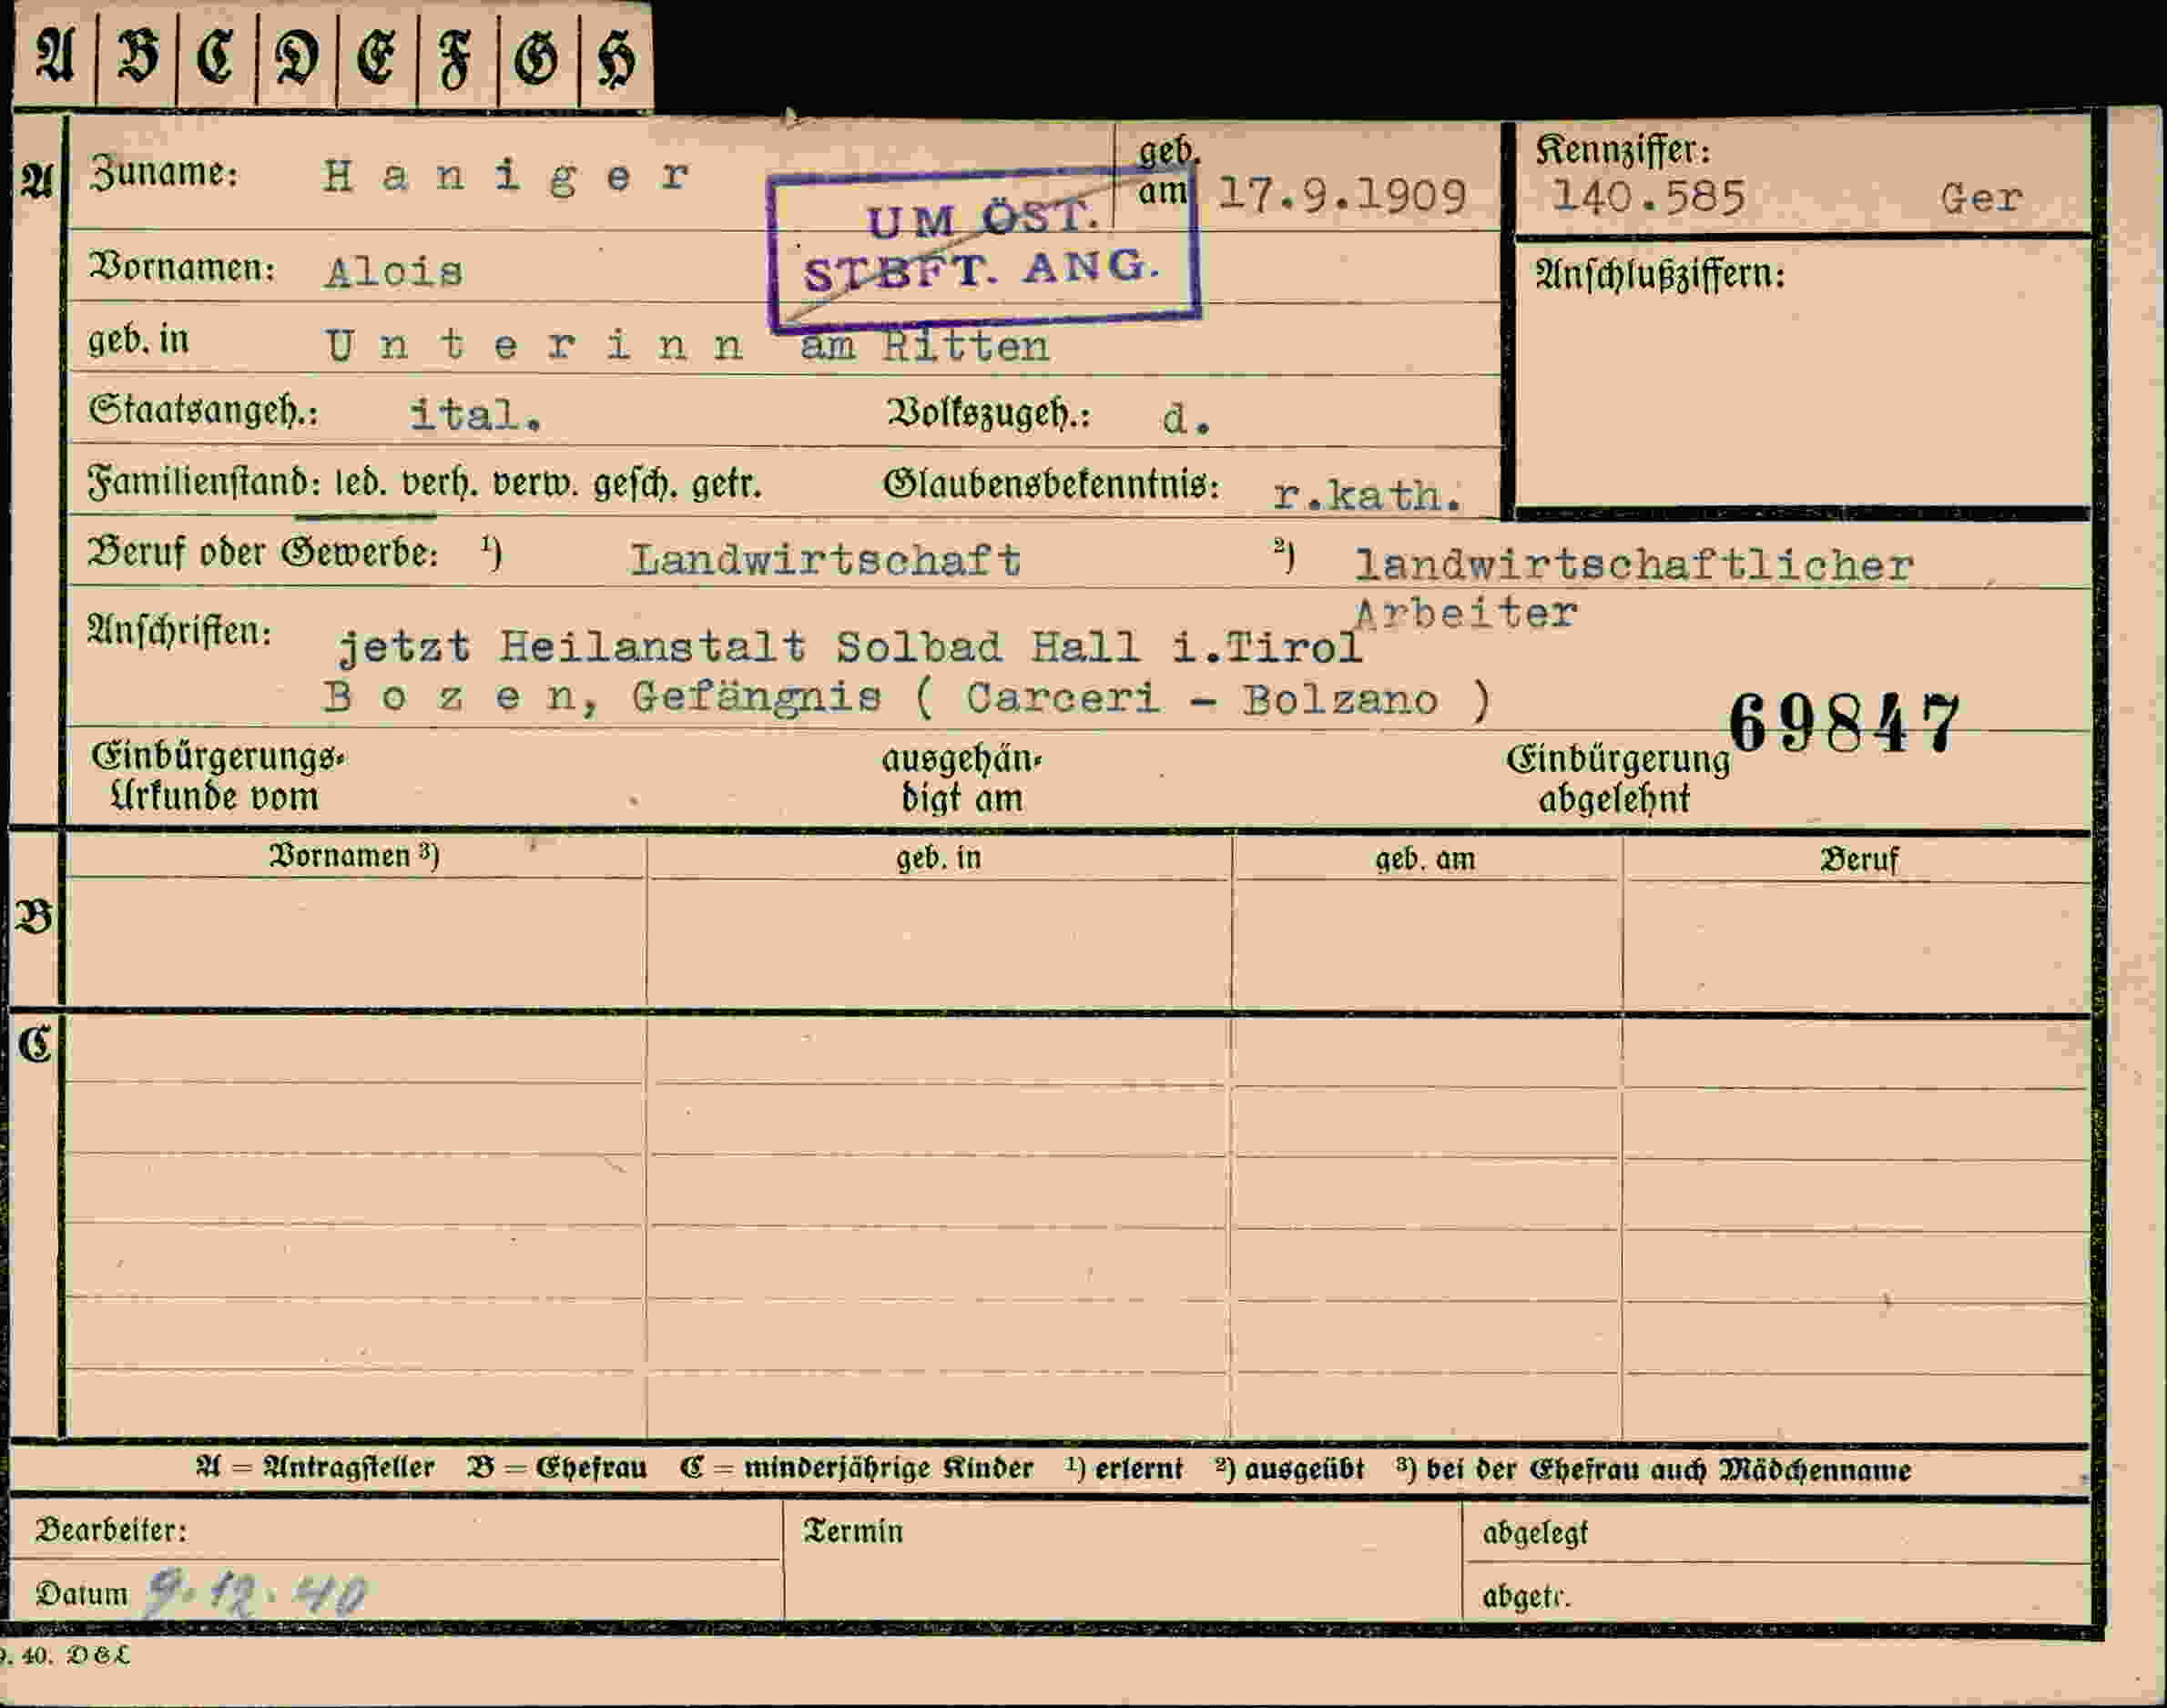 A B C D E F G H
A Zuname: H a n i g e r geb. am 17.9.1909 Kennziffer: 140.585 Ger
UM ÖST.
STBFT. ANG.
Vornamen: Alois Anschlußziffern:
geb. in U n t e r i n n am Ritten
Staatsangeh.: ital. Volkszugeh.: d.
Familienstand: led. verh. verw. gesch. getr. Glaubensbekenntnis: r.kath.
Beruf oder Gewerbe: 1) Landwirtschaft 2) landwirtschaftlicher
Arbeiter
Anschriften: jetzt Heilanstalt Solbad Hall i.Tirol
B o z e n, Gefängnis ( Carceri - Bolzano )
69847
Einbürgerungs- ausgehän- Einbürgerung
Urkunde vom digt am abgelehnt
Vornamen 3) geb. in geb. am Beruf
B
C
A = Antragsteller B = Ehefrau C = minderjährige Kinder 1) erlernt 2) ausgeübt 3) bei der Ehefrau auch Mädchenname
Bearbeiter: Termin abgelegt
Datum 9.12.40 abgetr.
9. 40. D&L